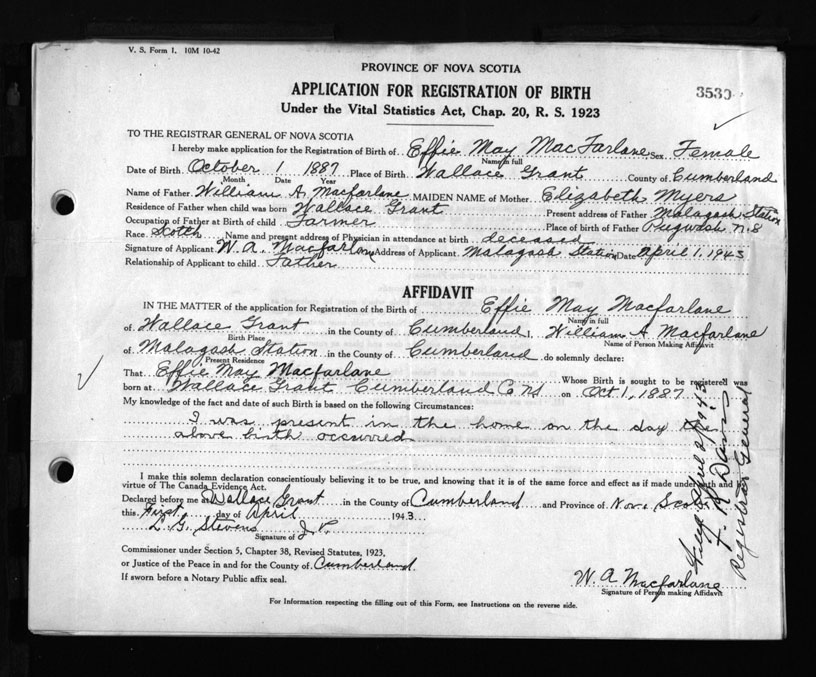 V. S. Form 1. 10M 10-42
PROVINCE OF NOVA SCOTIA
APPLICATION FOR REGISTRATION OF BIRTH
3530
Under the Vital Statistics Act, Chap. 20, R. S. 1923
TO THE REGISTRAR GENERAL OF NOVA SCOTIA
I hereby make application for the Registration of Birth of Effie May MacFarlane Sex Female
Name in full
Date of Birth October 1 1887 Place of Birth Wallace Grant County of Cumberland
Month Date Year
Name of Father William A Macfarlane MAIDEN NAME of Mother Elizabeth Myers
Residence of Father when child was born Wallace Grant Present address of Father Malagash Station
Occupation of Father at Birth of child Farmer Place of birth of Father Pugwash N.S
Race Scotch Name and present address of Physician in attendance at birth deceased
Signature of Applicant W. A. Macfarlane Address of Applicant Malagash Station Date April 1, 1943
Relationship of Applicant to child Father
AFFIDAVIT
IN THE MATTER of the application for Registration of the Birth of Effie May Macfarlane
Name in full
of Wallace Grant in the County of Cumberland I, William A Macfarlane
Birth Place Name of Person Making Affidavit
of Malagash Station in the County of Cumberland do solemnly declare:
Present Residence
That Effie May Macfarlane Whose Birth is sought to be registered was
born at Wallace Grant Cumberland Co NS on Oct 1, 1887
My knowledge of the fact and date of such Birth is based on the following Circumstances:
I was present in the home on the day the
above birth occurred
I make this solemn declaration conscientiously believing it to be true, and knowing that it is of the same force and effect as if made under oath and by
virtue of The Canada Evidence Act.
Declared before me at Wallace Grant in the County of Cumberland and Province of Nova Scotia
this First day of April 1943
L. G. Stevens J P
Signature of
Commissioner under Section 5, Chapter 38, Revised Statutes, 1923,
or Justice of the Peace in and for the County of Cumberland
If sworn before a Notary Public affix seal.
W. A Macfarlane
Signature of Person making Affidavit
For Information respecting the filling out of this Form, see Instructions on the reverse side.
Filed April 2/1943
Davis
Registrar General